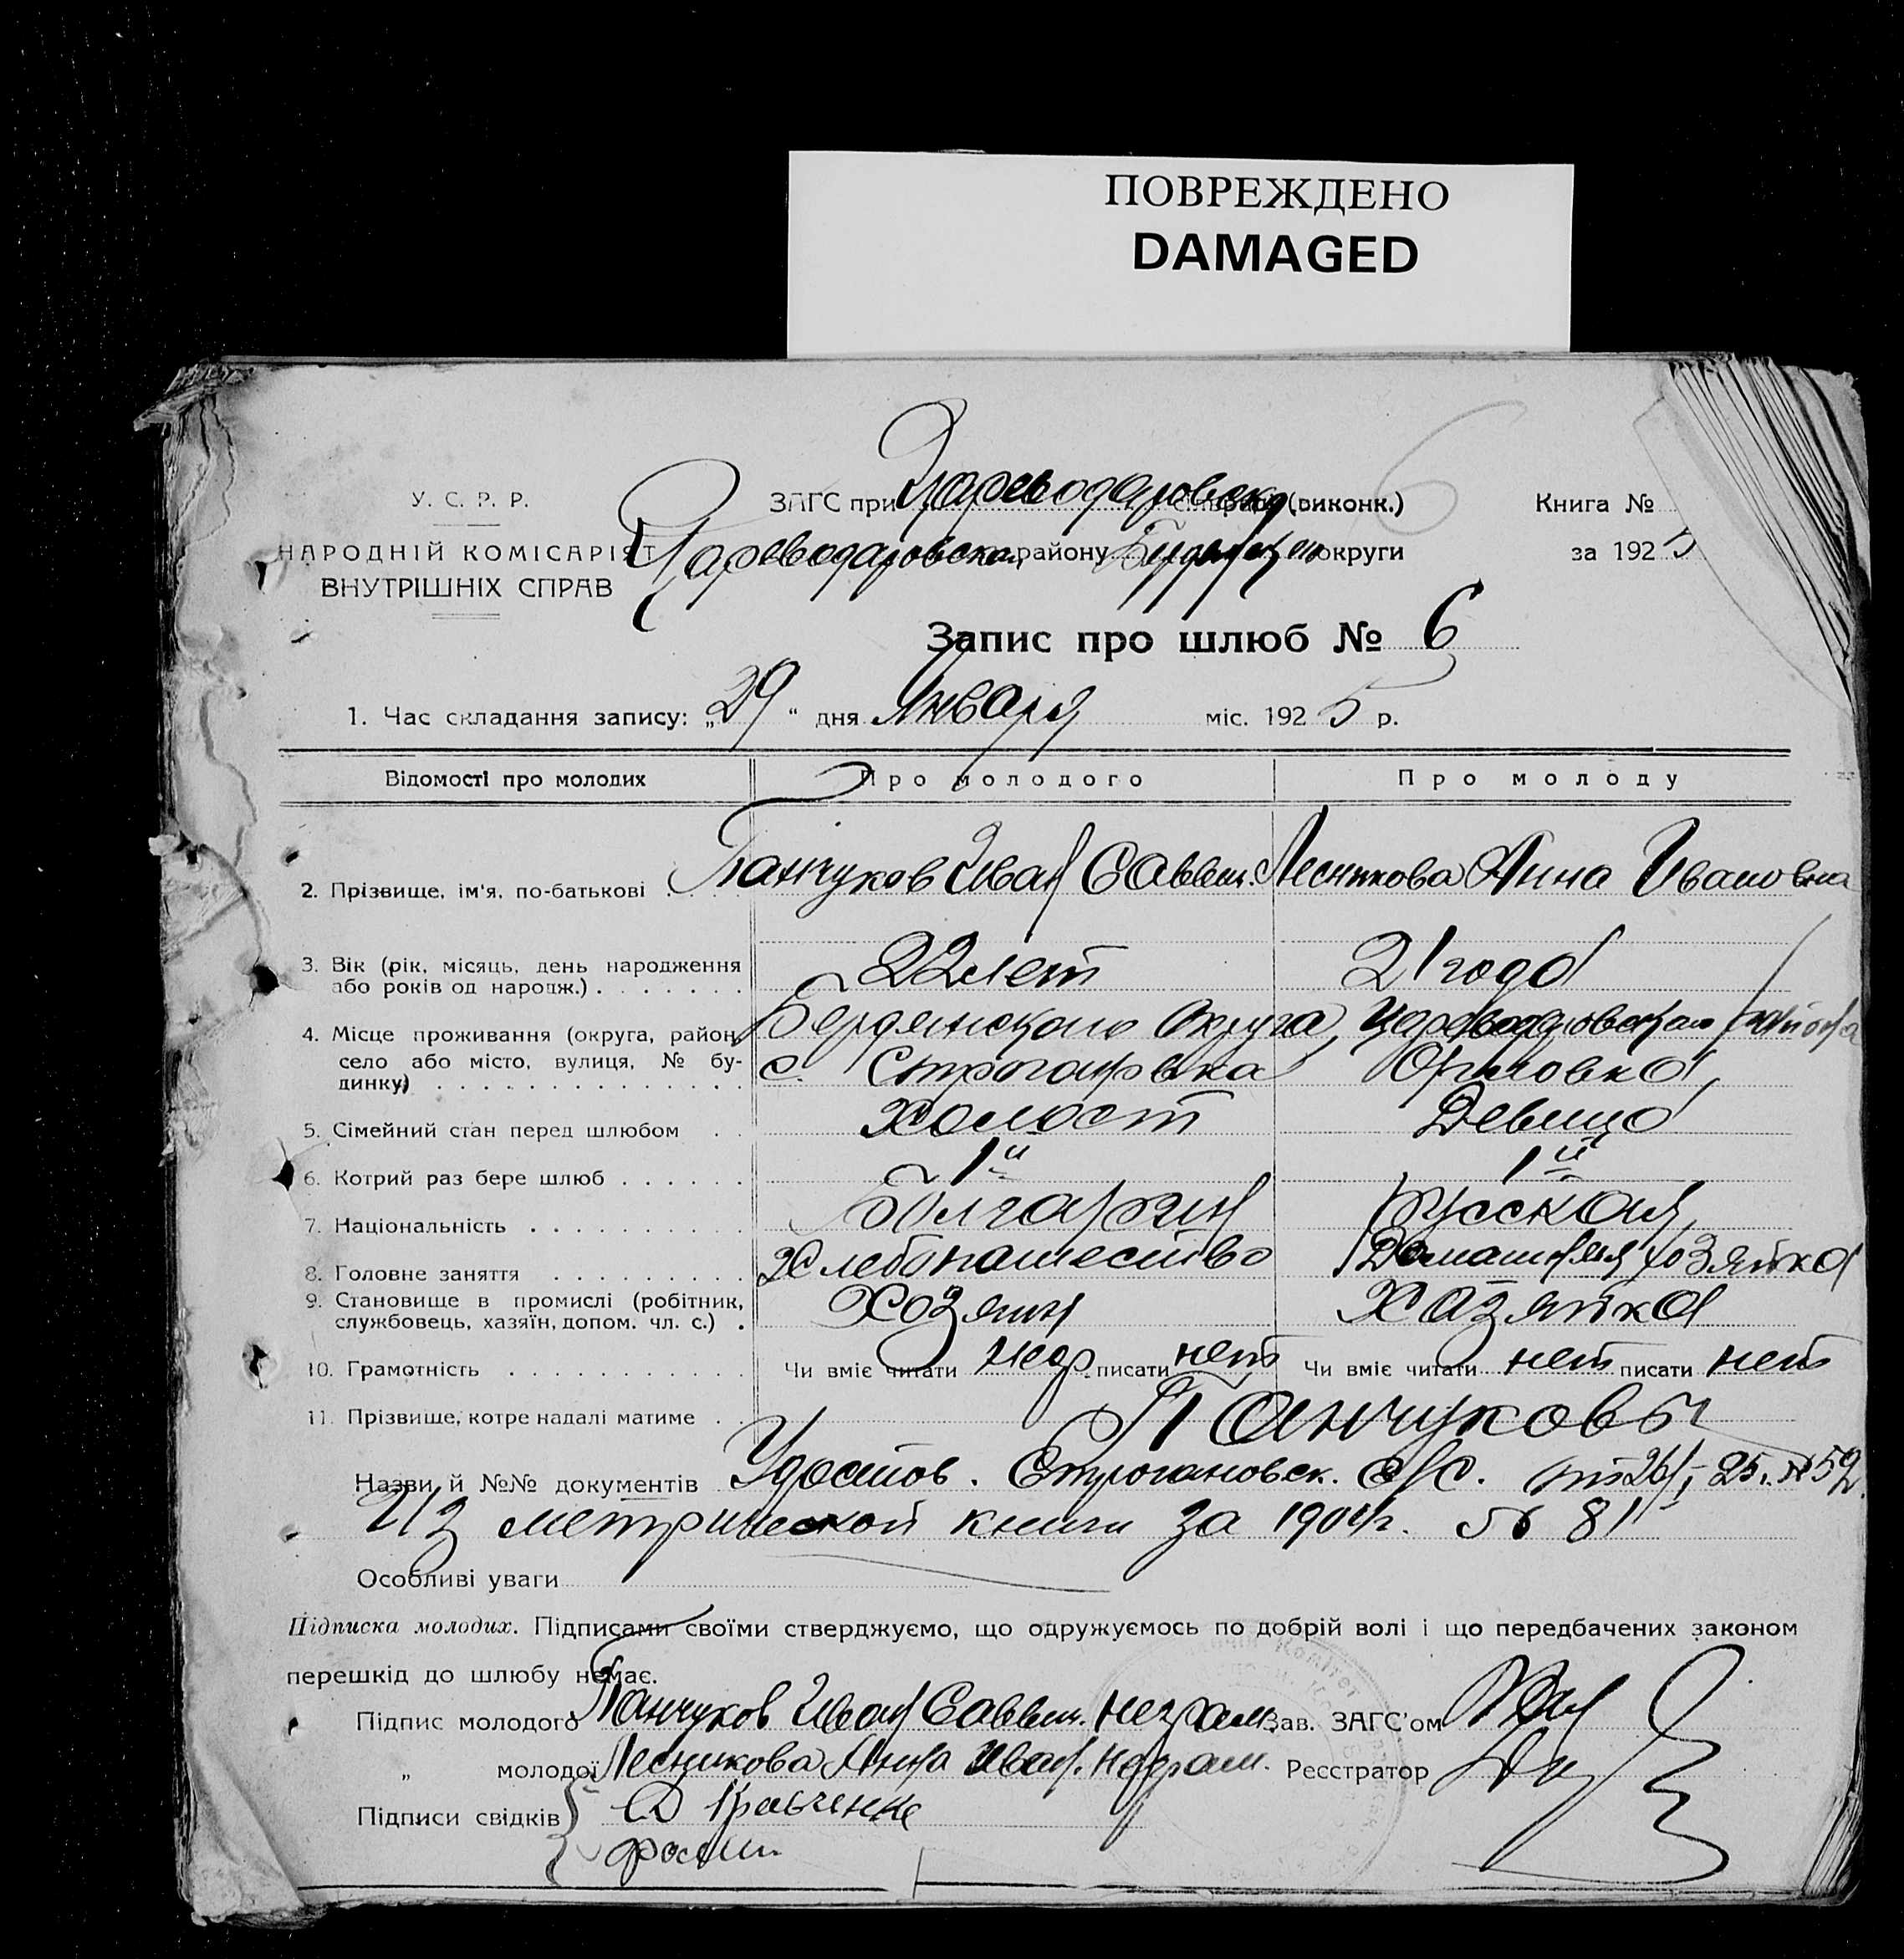 ПОВРЕЖДЕНО
DAMAGED
У. С. Р. Р.
НАРОДНІЙ КОМІСАРІЯТ
ВНУТРІШНІХ СПРАВ
ЗАГС при Цареводаровск (виконк.)
Цареводаровском району округи
6
Книга №
за 1925
Запис про шлюб № 6
1. Час складання запису: „29“ дня Января міс. 1925 р.
Відомості про молодих Про молодого Про молоду
2. Прізвище, ім'я, по-батькові Панчуков Иван Саввич. Лесникова Анна Ивановна
3. Вік (рік, місяць, день народження або років од народж.) 22 лет 21 года
4. Місце проживання (округа, район, село або місто, вулиця, № будинку) Бердянского Округа, Цареводаровского района
с. Строгановка Орловка
5. Сімейний стан перед шлюбом Холост Девица
6. Котрий раз бере шлюб 1й 1й
7. Національність Болгарин Русская
8. Головне заняття Хлебопашество Домашняя хозяйка
9. Становище в промислі (робітник, службовець, хазяїн, допом. чл. с.) Хозяин Хазяйка
10. Грамотність Чи вміє читати писати нет Чи вміє читати нет писати нет
11. Прізвище, котре надалі матиме Панчуковы
Назви й №№ документів Удостов. Строгановск. с/с. от 26/I 25 г. № 52
Из метрической книги за г. № 81
Особливі уваги
Підписка молодих. Підписами своїми стверджуємо, що одружуємось по добрій волі і що передбачених законом
перешкід до шлюбу немає.
Підпис молодого Панчуков Иван Саввич. неграм. Зав. ЗАГС'ом
„ молодої Лесникова Анна Иван. неграм. Реєстратор
Підписи свідків Кравченко